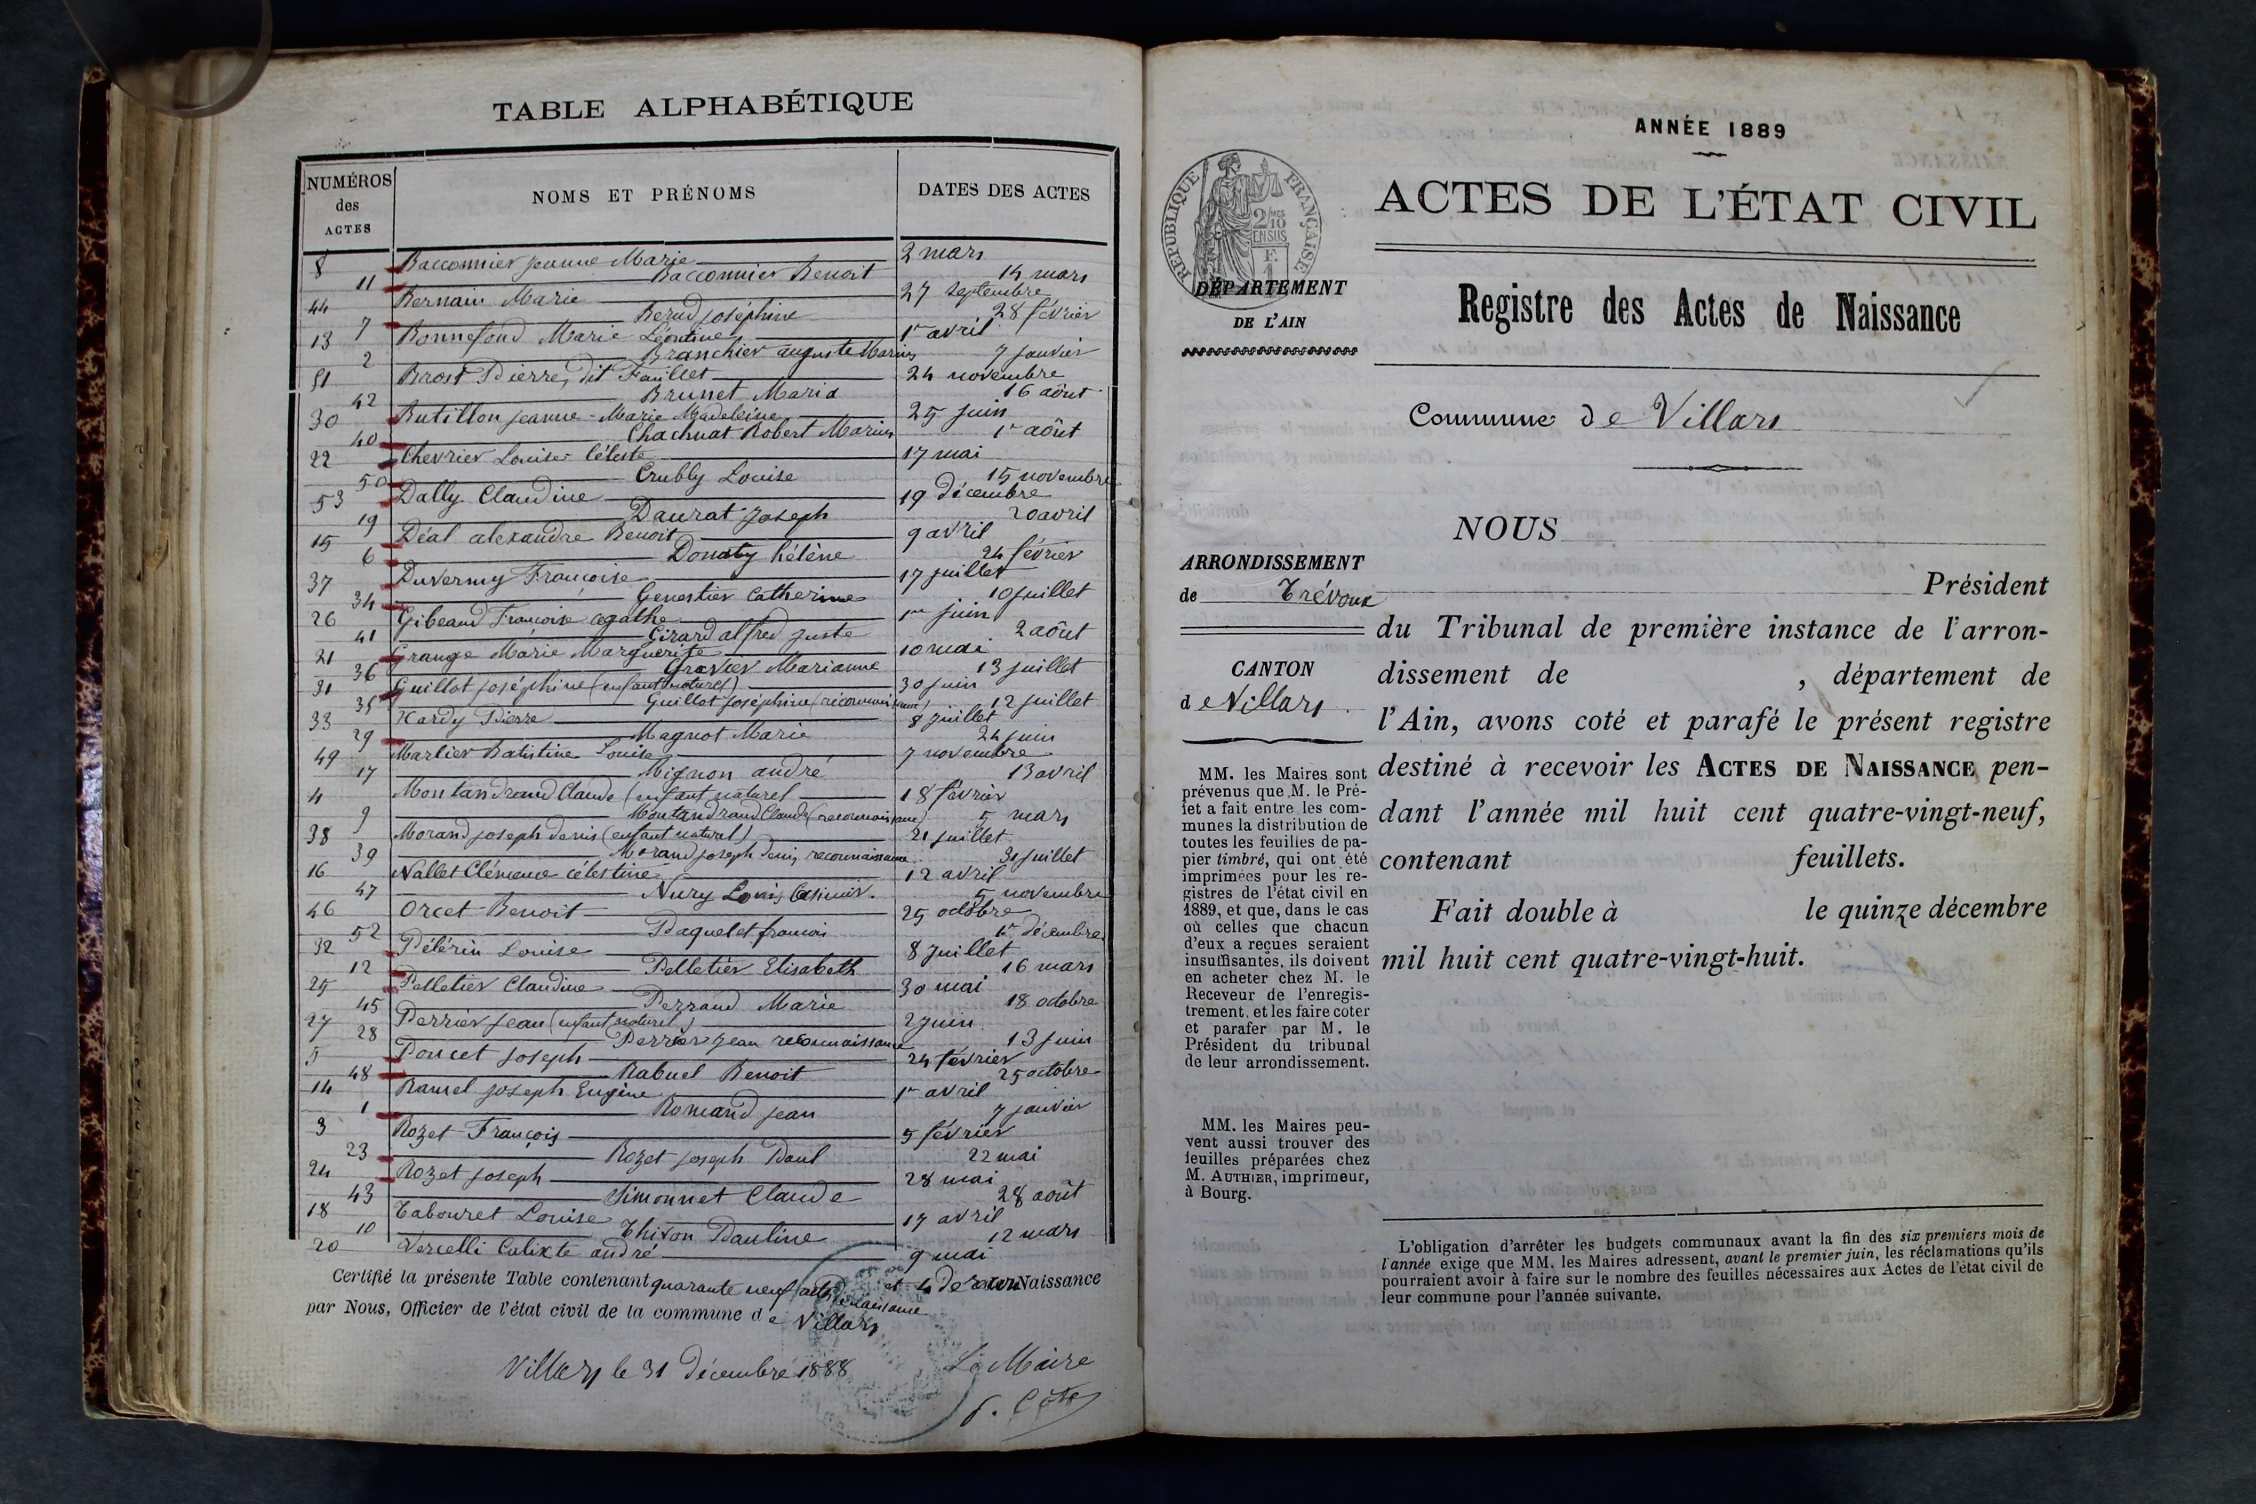 TABLE ALPHABÉTIQUE
NUMÉROS des ACTES NOMS ET PRÉNOMS DATES DES ACTES
8 Bacconnier Jeanne Marie 2 mars
11 Bacconnier Benoit 14 mars
44 Bernain Marie 27 septembre
7 Berud joséphine 28 février
13 Bonnefond Marie Léontine 1er avril
2 Branchier auguste Marius 7 janvier
51 Brost Pierre, dit Faillet 24 novembre
42 Brunet Maria 16 aôut
30 Butillon jeanne-Marie Madeleine 25 juin
40 Chachuat Robert Marius 1er aôut
22 Chevrier Louise Céleste 17 mai
50 Crubly Louise 15 novembre
53 Dally Claudine 19 décembre
19 Daurat Joseph 20 avril
15 Déal alexandre Benoit 9 avril
6 Donaty hélène 24 février
37 Duvernay Françoise 17 juillet
34 Genestier Catherine 10 juillet
26 Gibeaud Françoise agathe 1er juin
41 Girard alfred juste 2 aôut
21 Grange Marie Marguerite 10 mai
36 Gravier Marianne 13 juillet
31 Guillot joséphine (enfant naturel) 30 juin
35 Guillot joséphine (reconnaissance) 12 juillet
33 Hardy Pierre 8 juillet
29 Magnot Marie 24 juin
49 Marlier Batistine Louise 7 novembre
17 Mignon andré 13 avril
4 Montandraud Claude (enfant naturel 18 février
9 Montandraud Claude (reconnaissance) 5 mars
38 Morand joseph denis (enfant naturel) 21 juillet
39 Morand joseph denis reconnaissance 31 juillet
16 Nallet Clémence célestine 12 avril
47 Nury Louis Casimir. 5 novembre
46 Orcet Benoit 25 octobre
52 Paquelet francois 1er décembre
32 Pélérin Louise 8 juillet
12 Pelletier Elisabeth 16 mars
25 Pelletier Claudine 30 mai
45 Perraud Marie 18 octobre
27 Perrier jean (enfant naturel) 2 juin
28 Perrier jean reconnaissance 13 juin
5 Poncet joseph 24 février
48 Rabuel Benoit 25 octobre
14 Ramel joseph Eugène 1er avril
1 Romand jean 7 janvier
3 Rozet François 5 février
23 Rozet joseph Paul 22 mai
24 Rozet joseph 28 mai
43 Simonnet Claude 28 août
18 Tabouret Louise 17 avril
10 Thivon Pauline 12 mars
20 Vercelli Calixte andré 9 mai
Certifié la présente Table contenant quarante neuf actes de naissance et 4 de Naissance
par Nous, Officier de l'état civil de la commune de Villars
Villars le 31 Décembre 1888
Le Maire
ANNÉE 1889
RÉPUBLIQUE FRANÇAISE
2/10 EN SUS
F. 1
ACTES DE L'ÉTAT CIVIL
DÉPARTEMENT
DE L'AIN
Registre des Actes de Naissance
Commune de Villars
NOUS
ARRONDISSEMENT
de Trévoux
CANTON
de Villars
Président
du Tribunal de première instance de l'arron-
dissement de , département de
l'Ain, avons coté et parafé le présent registre
destiné à recevoir les ACTES DE NAISSANCE pen-
dant l'année mil huit cent quatre-vingt-neuf,
contenant feuillets.
Fait double à le quinze décembre
mil huit cent quatre-vingt-huit.
MM. les Maires sont
prévenus que M. le Pré-
fet a fait entre les com-
munes la distribution de
toutes les feuilles de pa-
pier timbré, qui ont été
imprimées pour les re-
gistres de l'état civil en
1889, et que, dans le cas
où celles que chacun
d'eux a reçues seraient
insuffisantes, ils doivent
en acheter chez M. le
Receveur de l'enregis-
trement, et les faire coter
et parafer par M. le
Président du tribunal
de leur arrondissement.
MM. les Maires peu-
vent aussi trouver des
feuilles préparées chez
M. AUTHIER, imprimeur,
à Bourg.
L'obligation d'arrêter les budgets communaux avant la fin des six premiers mois de
l'année exige que MM. les Maires adressent, avant le premier juin, les réclamations qu'ils
pourraient avoir à faire sur le nombre des feuilles nécessaires aux Actes de l'état civil de
leur commune pour l'année suivante.